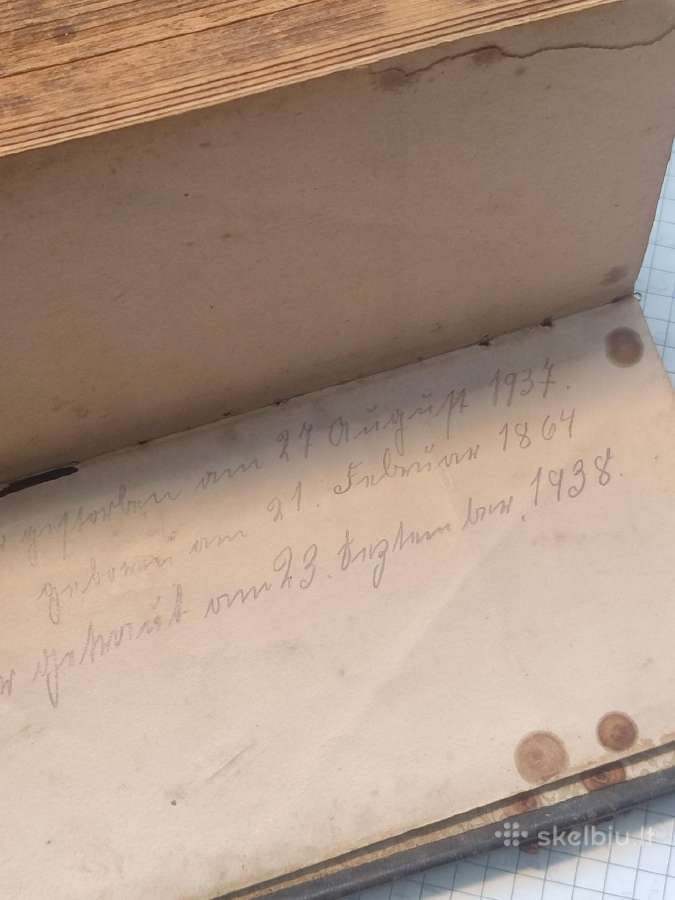 gestorben am 27 August 1937.
Geboren am 21. Februar 1864
Getraut am 23. Dezember 1938.
skelbiu.lt